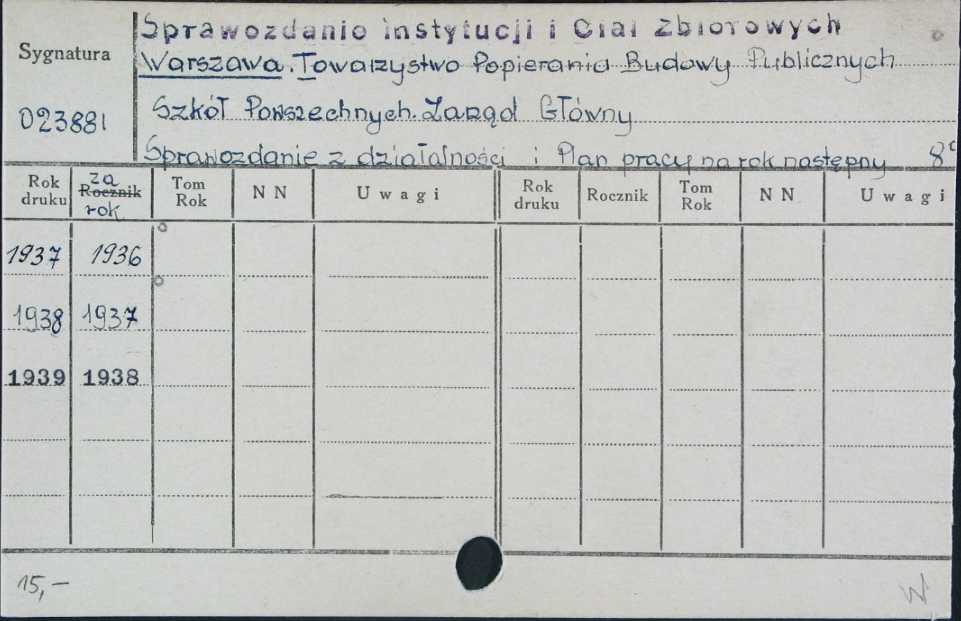 Sprawozdanie instytucji i Ciał Zbiorowych
Sygnatura
Warszawa. Towarzystwo Popierania Budowy Publicznych
023881
Szkół Powszechnych. Zarząd Główny
Sprawozdanie z działalności i Plan pracy na rok następny 8°
Rok druku | za Rocznik rok | Tom Rok | NN | Uwagi | Rok druku | Rocznik | Tom Rok | NN | Uwagi
1937 1936
1938 1937
1939 1938
15,-